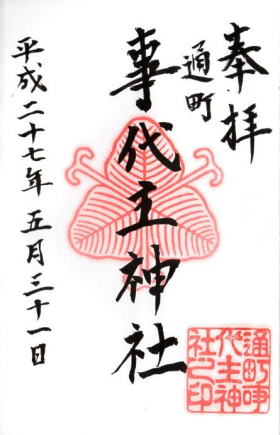 奉拝
通町
事代主神社
平成二十七年五月三十一日
通町事
代主神
社之印